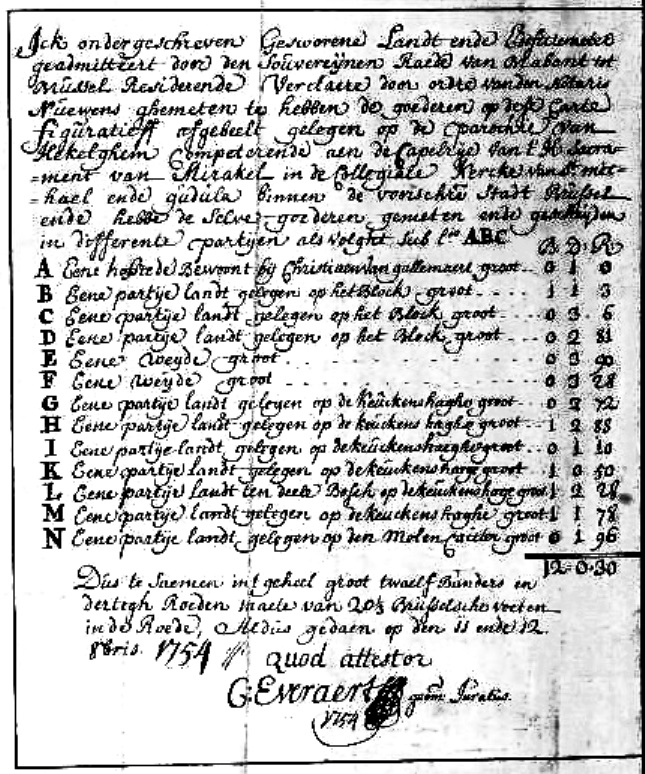 Ick ondergeschreven Gesworene Landt ende Edificiemeter
geadmitteert door den Souvereynen Raede van Brabant tot
Brussel Residerende Verclaere door ordre vanden Notaris
Nuewens ghemeten te hebben de goederen op dese Carte
figuratieff afgebeelt gelegen op de Parochie van
Hekelghem Competerende aen de Capelrije van t' H. Sacra=
=ment van Mirakel in de Collegiale Kercke van St. mic=
=hael ende gudula binnen de vorischre Stadt Brussel
ende hebbe de selve goederen gemeten ende
in differente partijen als volght sub l.is ABC
B. D. R
A Eene hofstede Bewoont bij Christiaen van gallemaert groot.. 0 1 0
B Eene partije landt gelegen op het Block groot .... 1 1 3
C Eene partije landt gelegen op het Block groot ..... 0 3 6
D Eene partije landt gelegen op het Block groot ..... 0 2 81
E Eene Weyde groot ........ 0 3 90
F Eene Weyde groot ........ 0 3 28
G Eene partije landt gelegen op de keuckenshaghe groot .. 0 2 72
H Eene partije landt gelegen op de keuckens haghe groot .. 1 2 88
I Eene partije landt gelegen op de keuckenshaeghe groot .. 0 1 10
K Eene partije landt gelegen op de keuckens haege groot .. 1 0 50
L Eene partije landt ten deele Bosch op de keuckenshaege groot 1 2 28
M Eene partije landt gelegen op de keuckens haghe groot 1 1 78
N Eene partije landt gelegen op den Molen Cauter groot 0 1 96
12-0-30
Dus te saemen int geheel groot twaelf Bunders en
dertegh Roeden maete van 20⅓ Brusselsche voeten
in de Roede, Aldus gedaen op den 11 ende 12
8bris. 1754
quod attestor
G. Everaert Juratus
1754